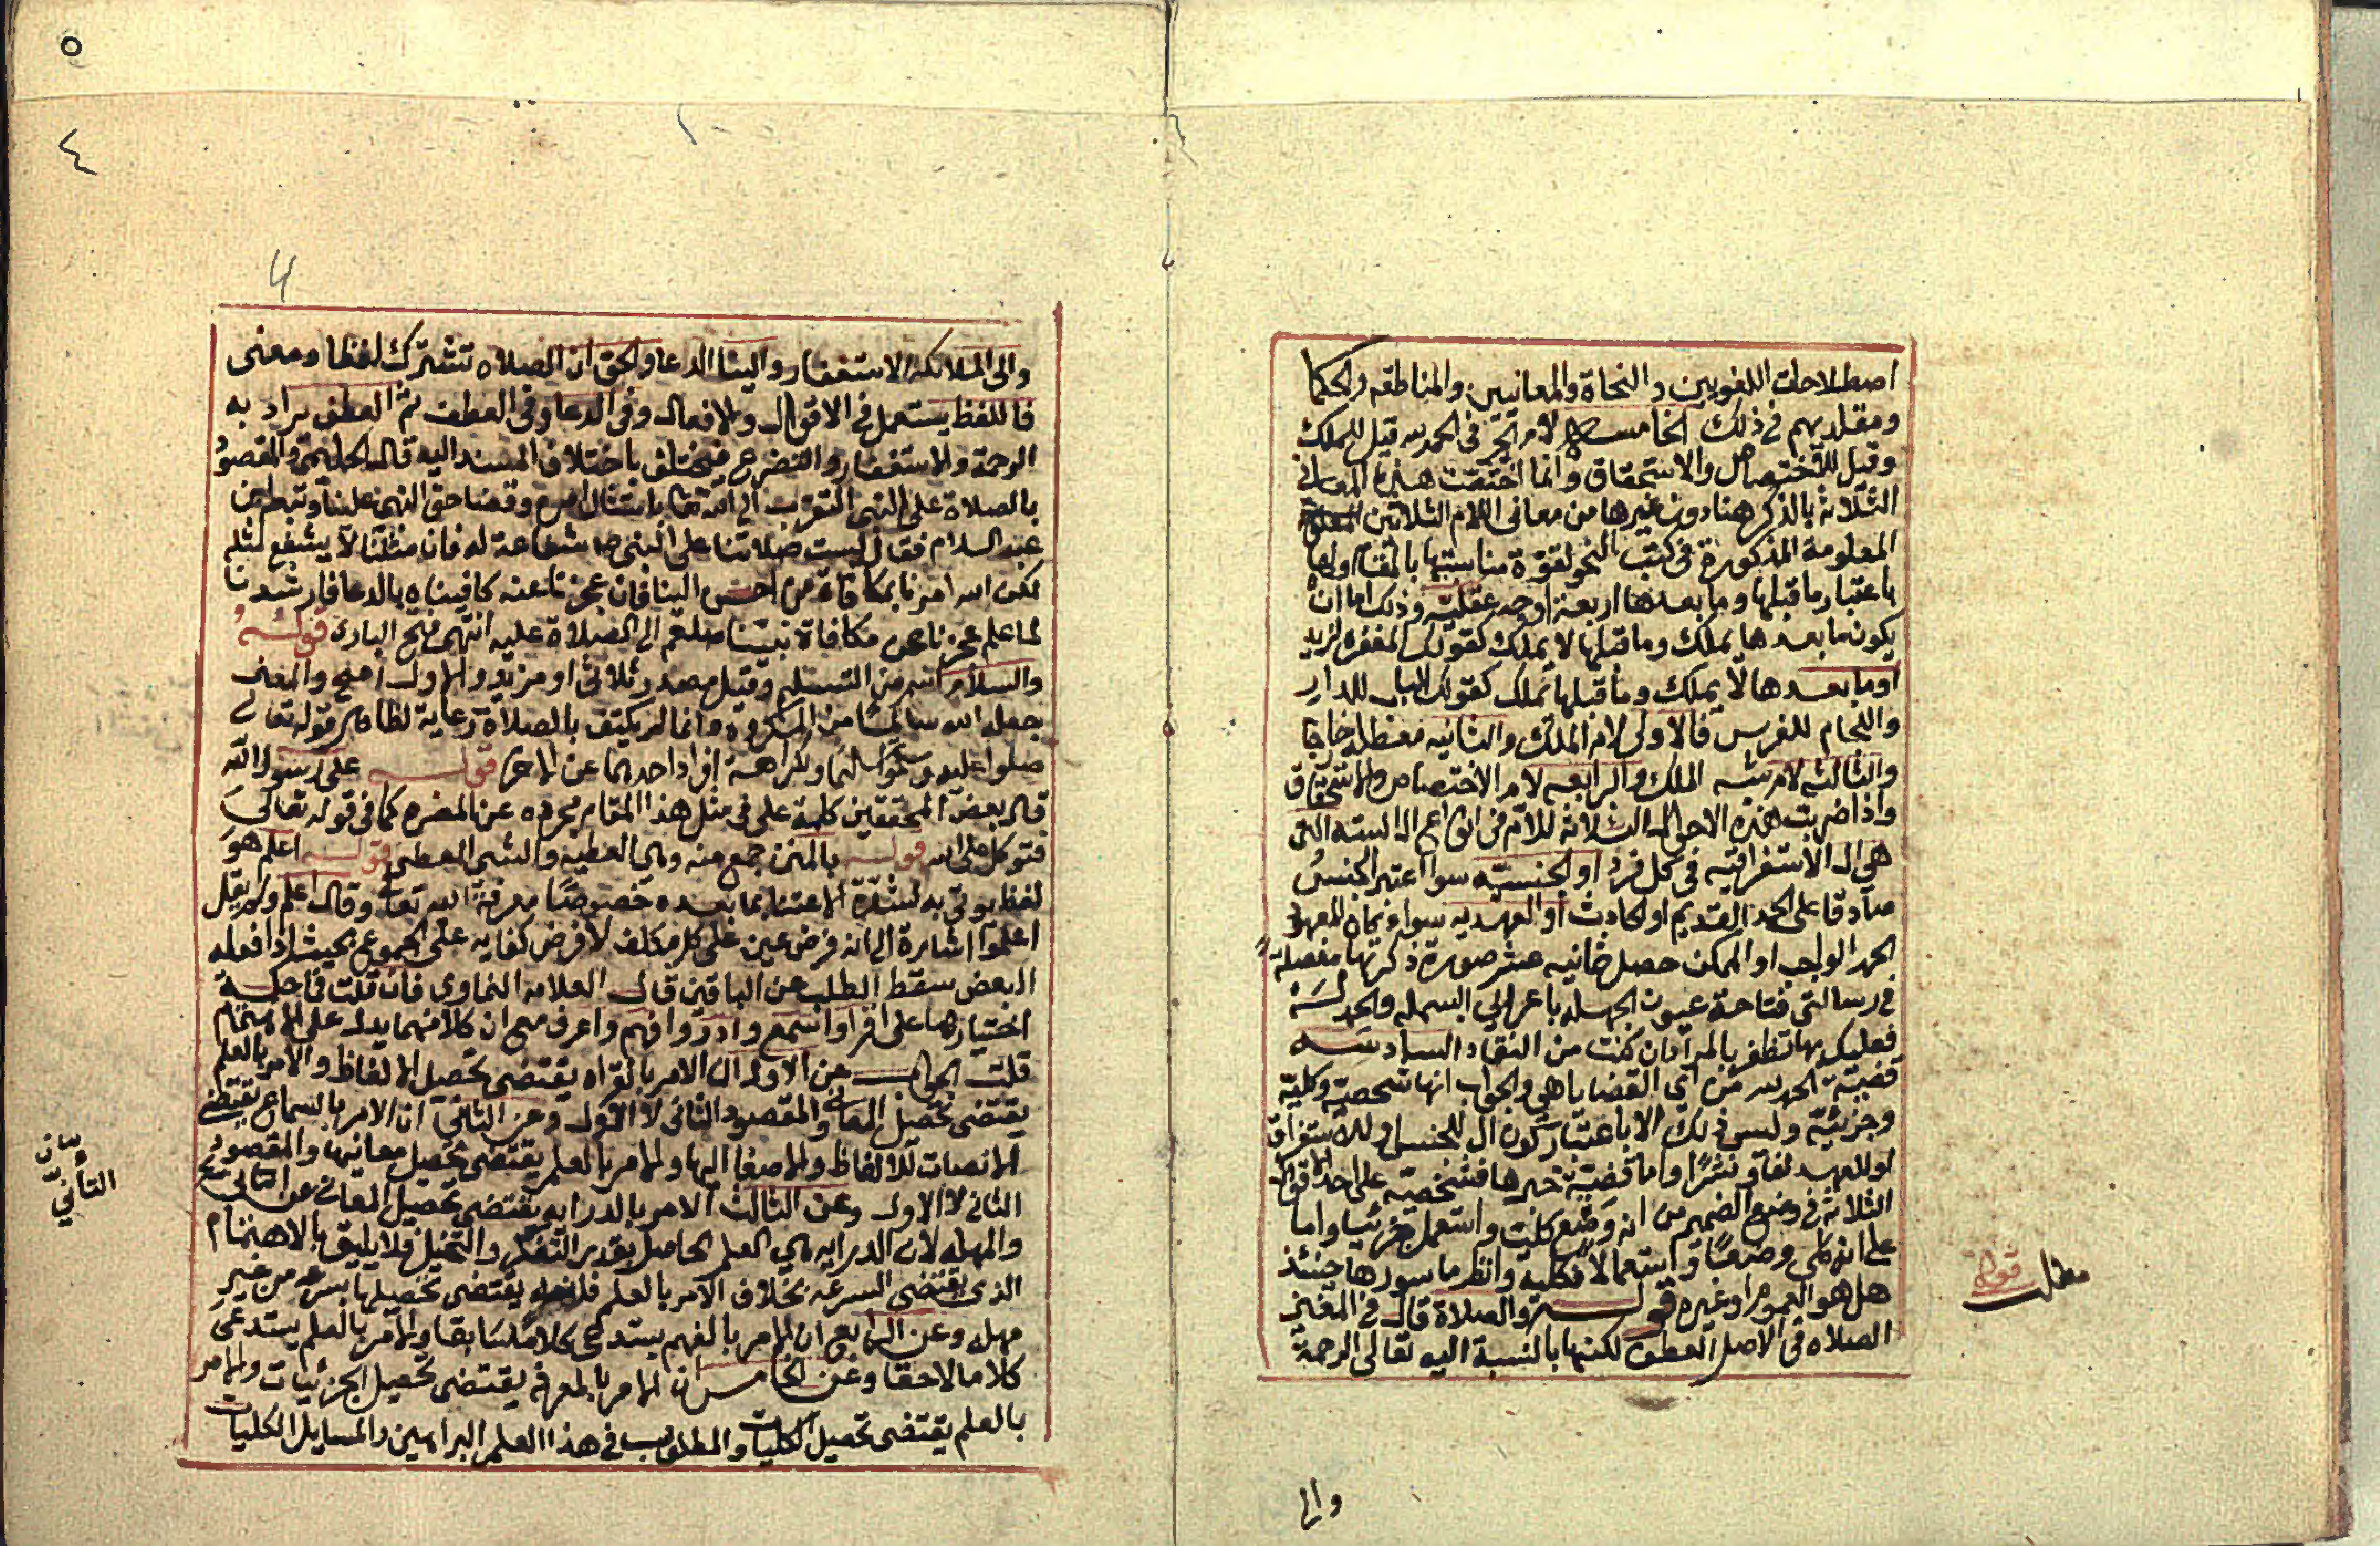 اصطلاحات اللغويين والنحاة والمعانيين والمناطقه والحكما
ومقلديهم في ذلك الخامسة لام الجر في الحمد لله قيل للملك
وقيل للاختصاص والاستحقاق وانما اختصت هذه المعاني
الثلاثة بالذكر هنا دون غيرها من معاني اللام الثلاثين
المعلومة المذكورة في كتب النحو لقوة مناسبتها بالمقام ولها
باعتبار ما قبلها وما بعدها اربعة اوجه عقلية وذلك اما ان
يكون ما بعدها يملك وما قبلها لا يملك كقولك المغفرة لزيد
اوما بعدها لا يملك وما قبلها يملك كقولك الباب للدار
واللجام للفرس فالاولى لام الملك والثانيه
والثالثه لام شبه الملك والرابعه لام الاختصاص والاستحقاق
واذا ضربت هذه الاحوال الثلاثة للام في انواع ال الستة التي
هي ال الاستغراقيه في كل فرد او الجنسيه سوا اعتبر الجنس
صادقا على الحمد القديم او الحادث أو العهديه سواء كان المعهود
الحمد الواجب او الممكن حصل ثمانيه عشر صورة ذكرتها مفصلة
في رسالتي فتاحة عيون الجهله باعراب البسمله والحمدلة
فعليك بها تظفر بالمراد ان كنت من النقاد السادسه
قضية الحمد لله من اي القضايا هي والجواب انها شخصية وكلية
وجزئية وليس ذلك الا باعتبار كون ال للجنس او للاستغراق
او للعهد لفا ونشرا واما قضية خبرها فشخصية على احد الاقوال
الثلاثة في وضع الضمير من انه وضع كليا واستعمل جزئيا واما
على انه كلي وضعًا واستعمالا فكلية وانظر ما سورها حينئذ
هل هو العموم او غيره قوله والصلاة قال في المغني
الصلاه في الاصل العطف لكنها بالنسبة اليه تعالى الرحمة
مطلب قوله
والى
٥
٤
4
والى الملائكة الاستغفار والينا الدعا والحق ان الصلاه تشترك لفظا ومعنى
فاللفظ يستعمل في الاقوال والافعال وفي الدعا وفي العطف ثم العطف يراد به
الرحمة والاستغفار والتضرع فيختلف باختلاف المسند اليه قال الحليمي والمقصود
بالصلاة على النبي التقرب الى الله تعالى بامتثال امره وقضا حق النبي علينا وتبعه ابن
عبد السلام فقال ليست صلاتنا على النبي شفاعة له فان مثلنا لا يشفع لمثله
لكن الله امرنا بمكافاة من احسن الينا فان عجزنا عنه كافيناه بالدعا فارشدنا
لما علم عجزنا عن مكافاة نبينا صلعم الى الصلاة عليه انتهى فتح الباري قوله
والسلام اسم من التسليم وقيل مصدر ثلاثي او مزيد والاول اصح والمعنى
جعله الله سالمًا من المكروه وانما لم يكتف بالصلاة رعاية لظاهر قوله تعالى
صلوا عليه وسلموا تسليما ولكراهة افراد احدهما عن الاخر قوله على رسول الله
قال بعض المحققين كلمة على في مثل هذا المقام مجرده عن المضره كما في قوله تعالى
فتوكل على الله قوله بالمنن جمع منه وهي العطيه والشي المعطى قوله اعلم هو
لفظ يوتي به لشدة الاعتنا بما بعده خصوصًا معرفة الله تعالى وقال اعلم ولم يقل
اعلموا اشارة الى انه فرض عين على كل مكلف لا فرض كفايه على المجموع بحيث اذا فعله
البعض سقط الطلب عن الباقين قال العلامه النماوي فان قلت فما حكمة
اختيارها على اقرا واسمع وادر وافهم واعرف مع ان كلا منهما يدل على الاهتمام
قلت الجواب عن الاول ان الامر بالقراه يقتضي تحصيل الالفاظ والامر بالعلم
يقتضي تحصيل المعاني والمقصود الثاني لا الاول وعن الثاني ان الامر بالسماع يقتضي
الانصات للالفاظ والاصغا اليها والامر بالعلم يقتضي تحصيل معانيها والمقصود
الثاني لا الاول وعن الثالث الامر بالدرايه يقتضي تحصيل المعاني عن التاني مع
والمهله لان الدرايه هي العلم الحاصل بقدر التفكر والتخيل فلا يليق بالاهتمام
الذي يقتضي السرعه بخلاف الامر بالعلم فانه يقتضي تحصيلها بسرعه من غير
مهله وعن الرابع ان الامر بالفهم يستدعي كلامًا سابقا والامر بالعلم يستدعي
كلاما لاحقا وعن الخامس ان الامر بالمعرفه يقتضي تحصيل الجزئيات والامر
بالعلم يقتضي تحصيل الكليات والمطلوب في هذا العلم البراهين والمسايل الكليات
التأني